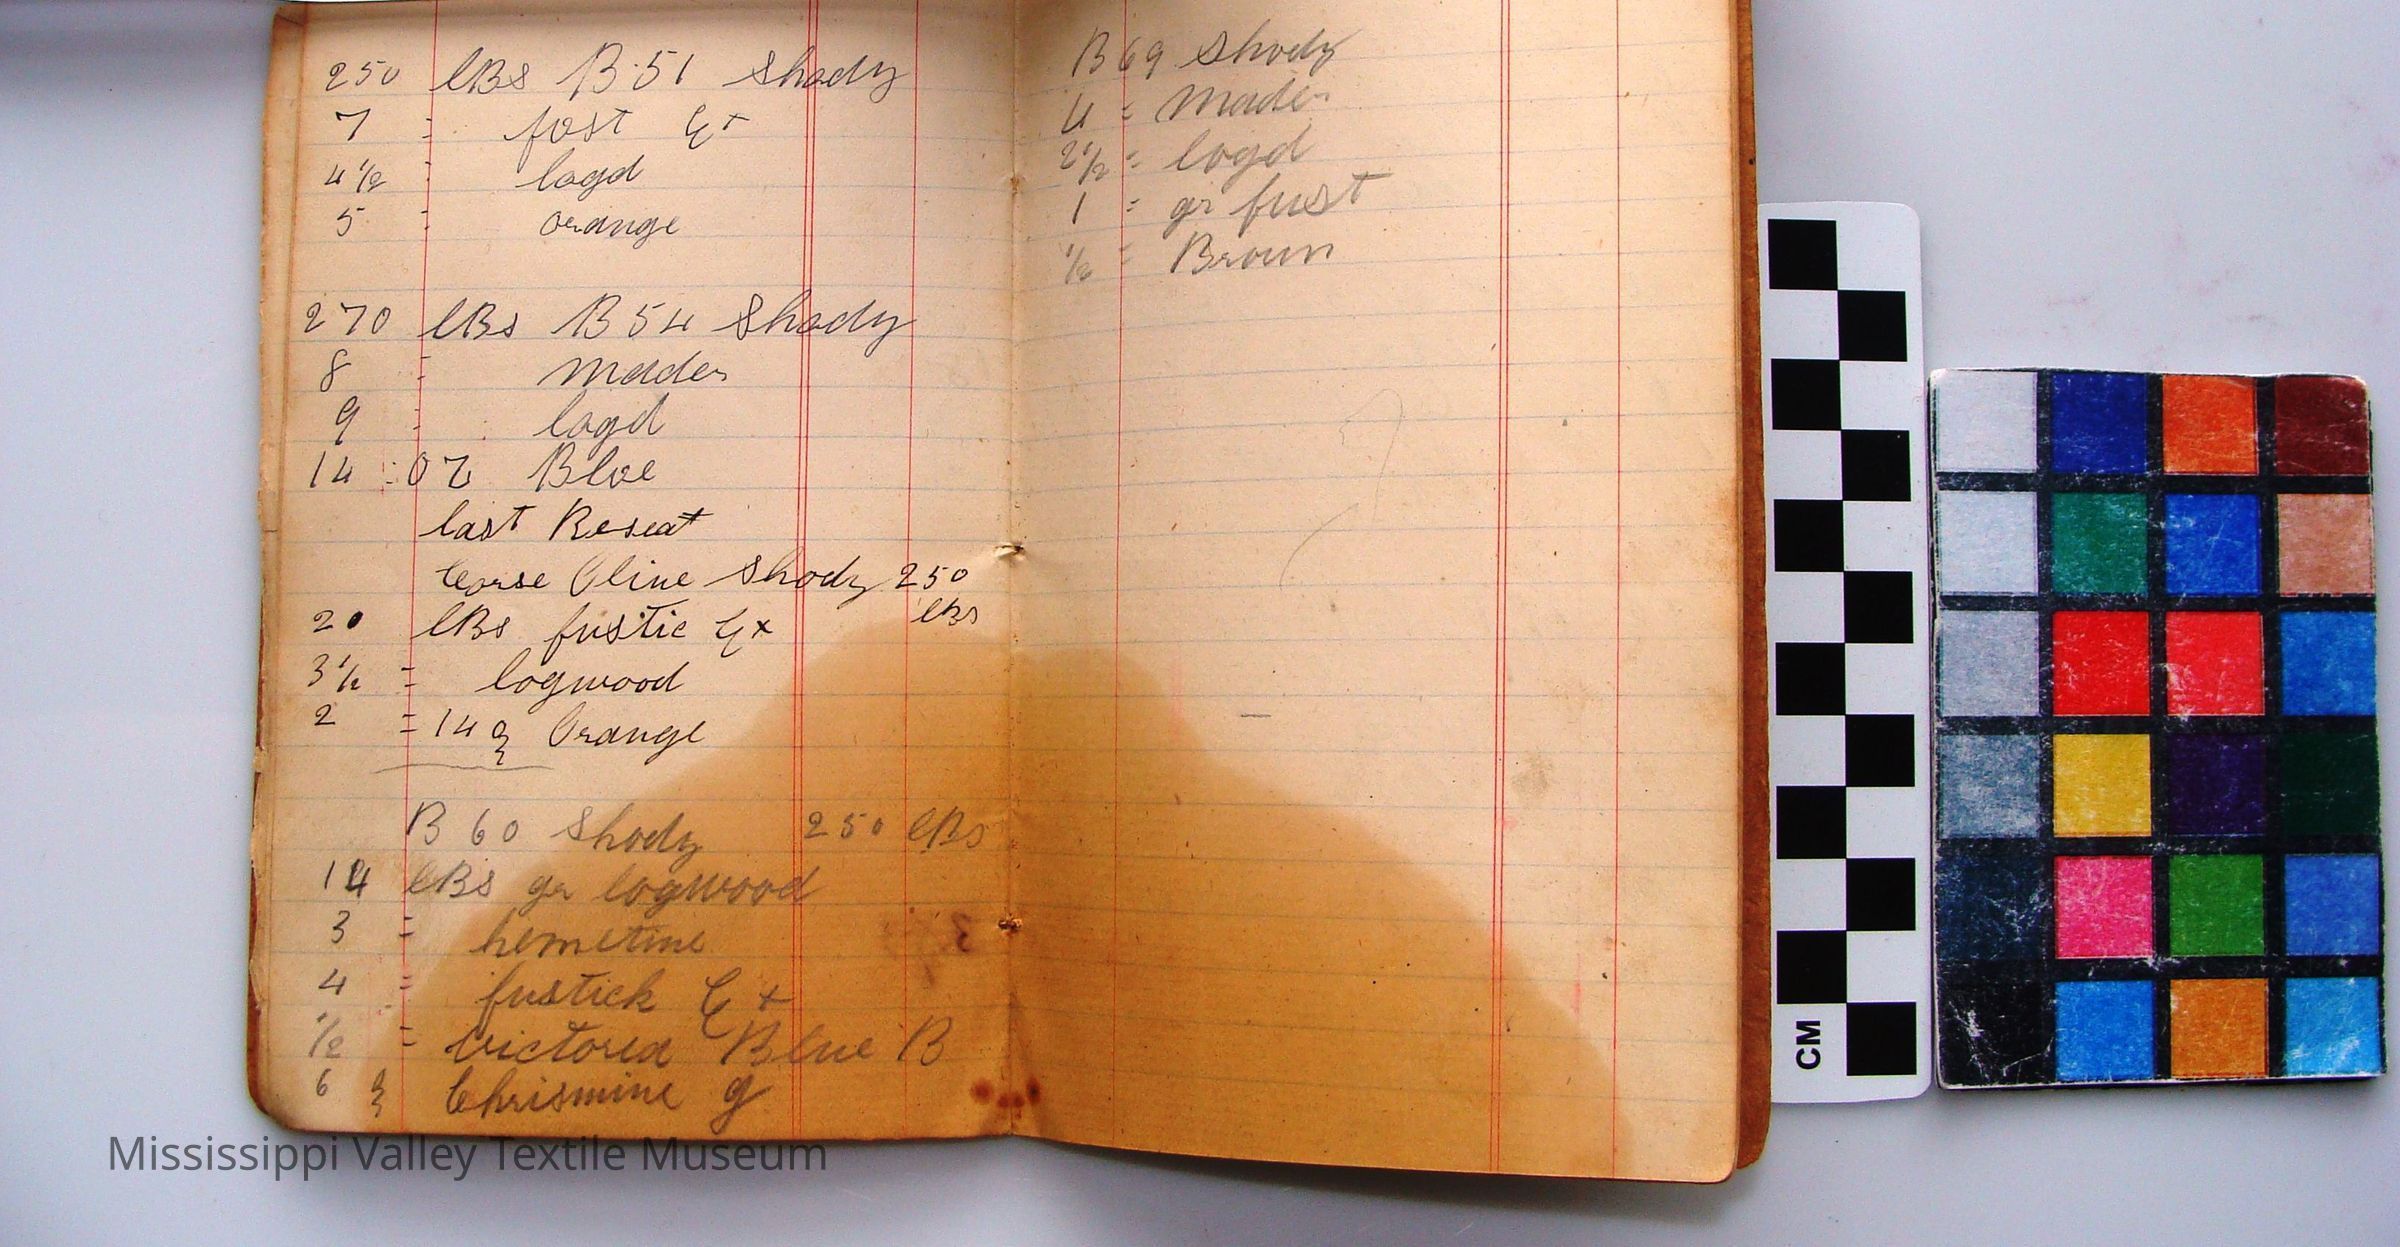 250 lBs B·51 Shody
7 = fast Ex
4 1/2 = logd
5 = orange
270 lBs B54 Shody
8 = Mader
9 = logd
14 = oz Blue
last Reseat
Corse Oline Shody 250 lBs
20 lBs fustic Ex
3 1/2 = logwood
2 = 14 oz Orange
B 60 Shody 250 lBs
14 lBs gr logwood
3 = hemetine
4 = fustick Ex
1/2 = victorea Blue B
6 oz Chrismine g
B 69 Shody
4 = Mader
2 1/2 = logd
1 = gr fust
1/2 = Broun
CM
Mississippi Valley Textile Museum